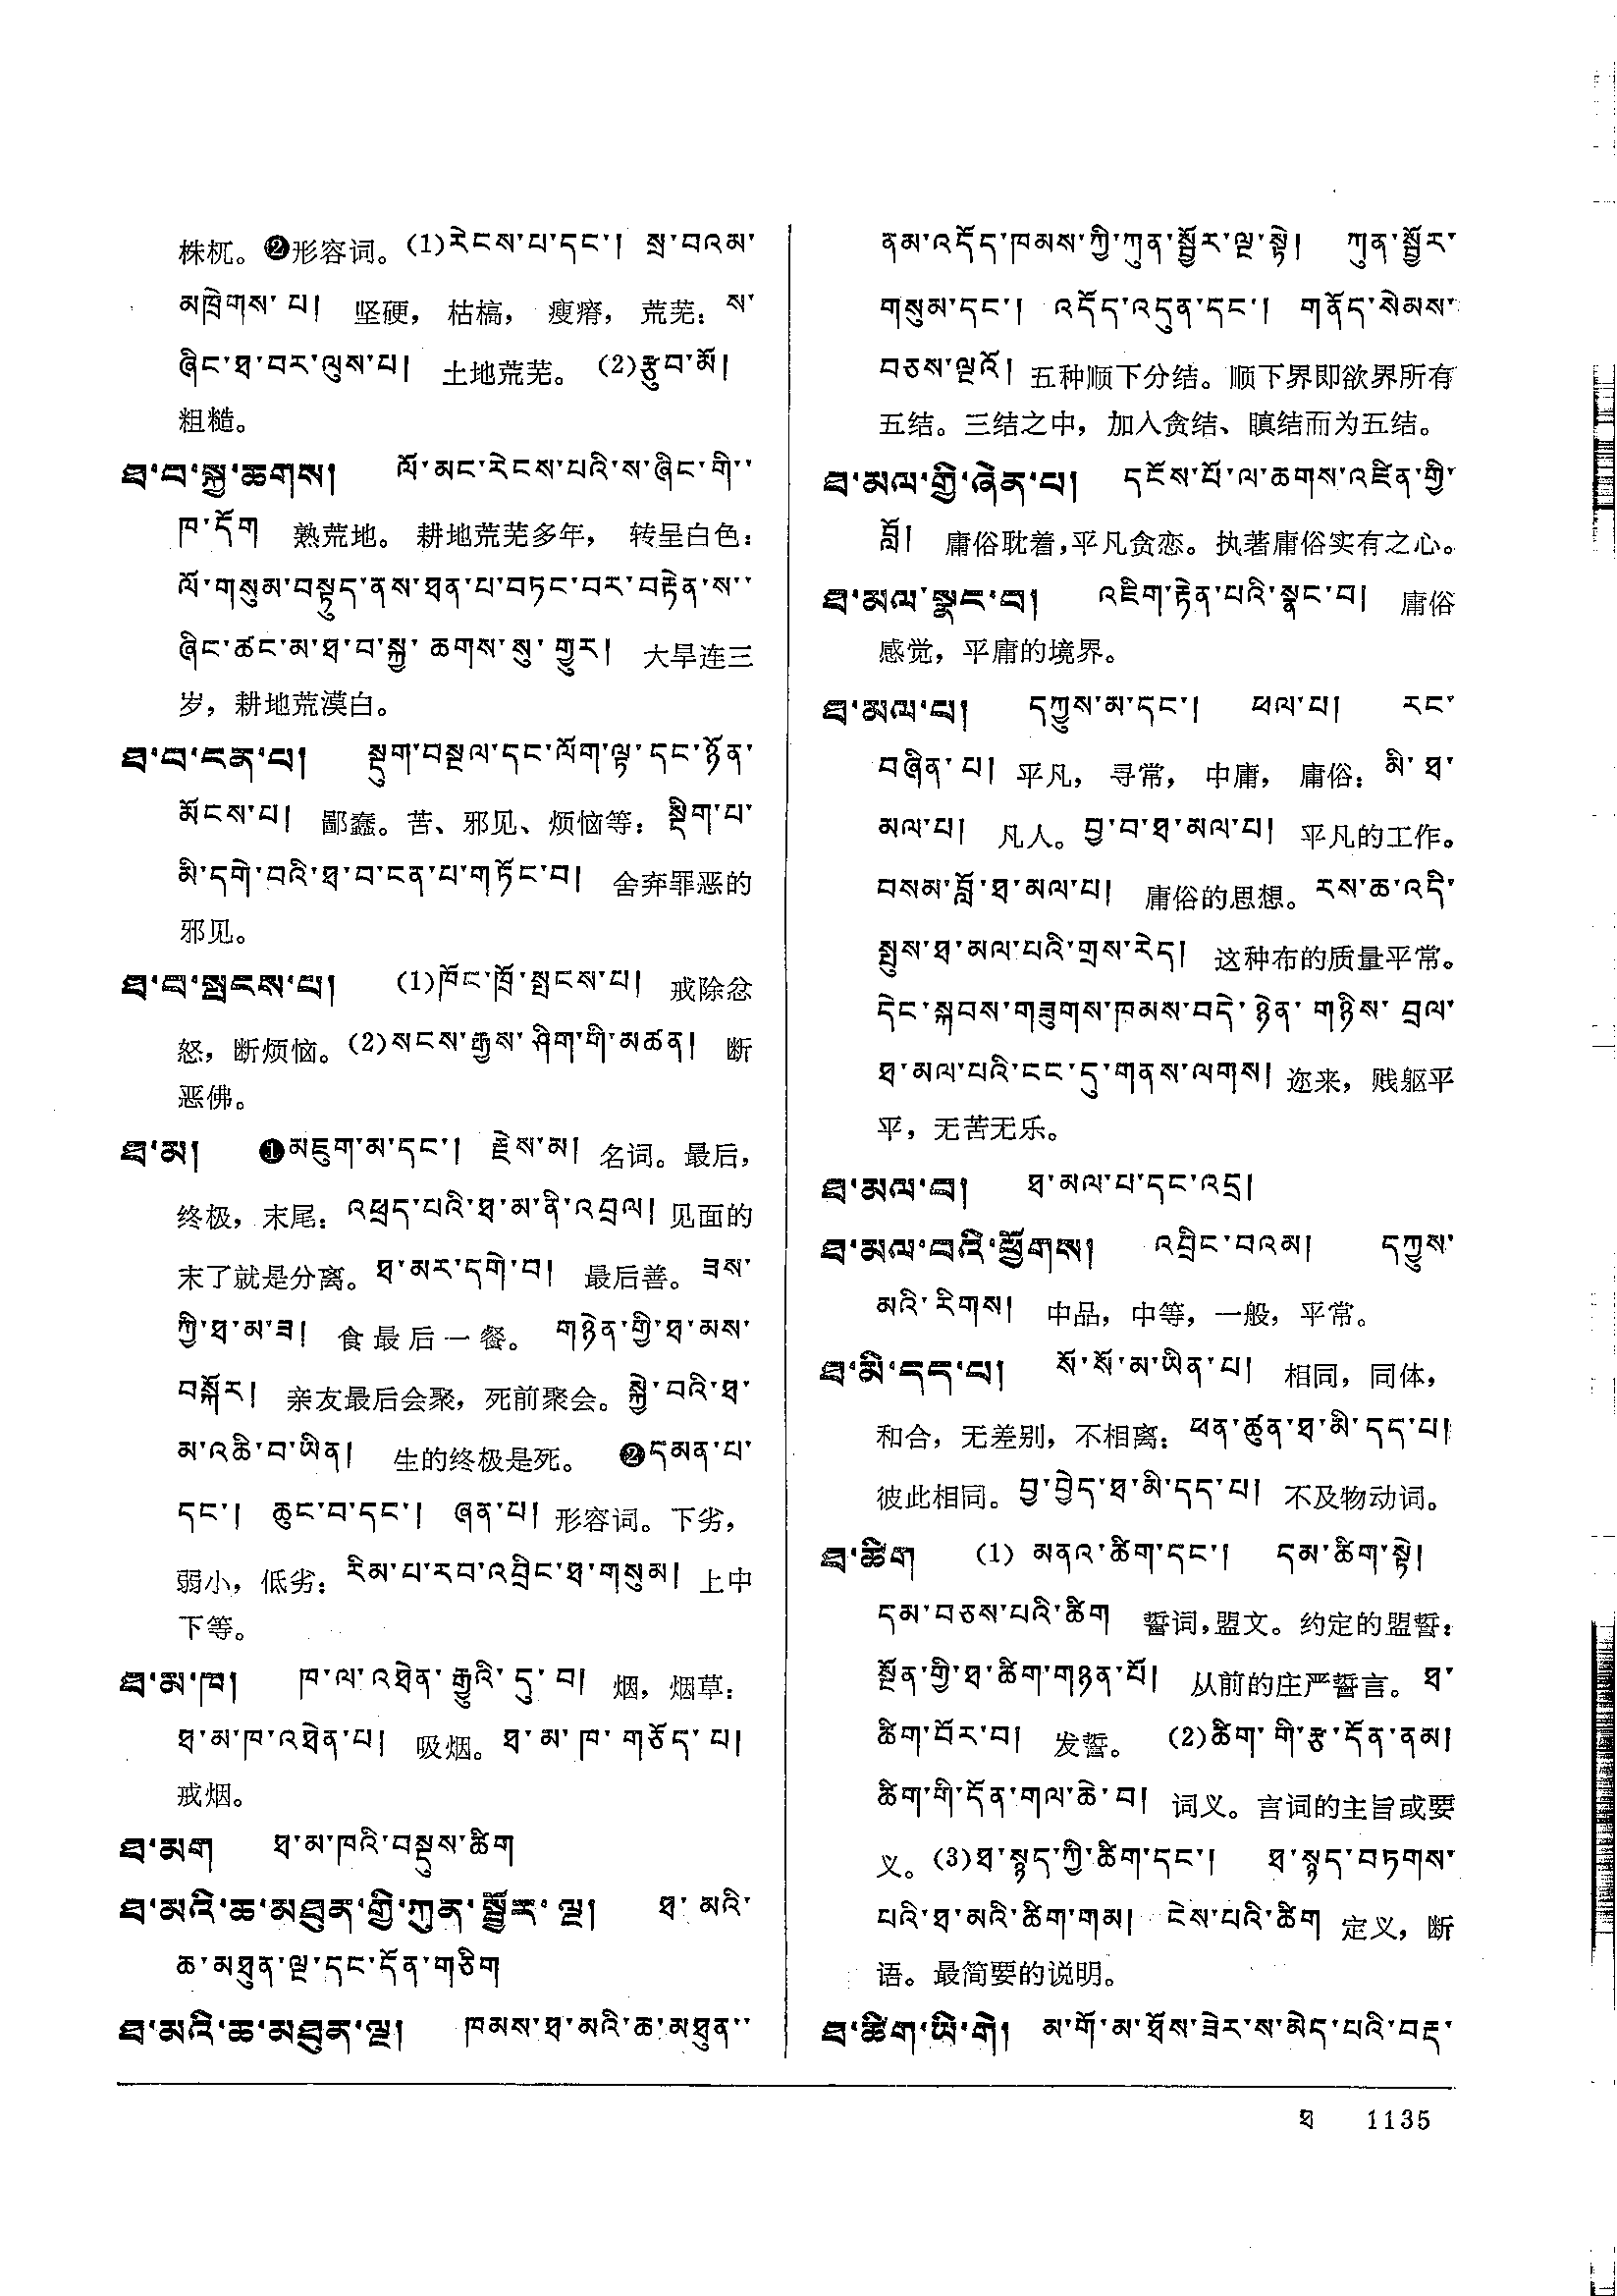 株杌。❷形容词。(1)རེངས་པ་དང་། སྲ་བའམ་
མཁྲེགས་པ། 坚硬，枯槁，瘦瘠，荒芜：ས་
ཞིང་ཐ་བར་ལུས་པ། 土地荒芜。(2)རྩུབ་མོ།
粗糙。
ཐ་བ་སྐྱ་ཆགས། ལོ་མང་རེངས་པའི་ས་ཞིང་གི་
ཁ་དོག 熟荒地。耕地荒芜多年，转呈白色：
ལོ་གསུམ་བསྟུད་ནས་ཐན་པ་བཏང་བར་བརྟེན་ས་
ཞིང་ཚང་མ་ཐ་བ་སྐྱ་ཆགས་སུ་གྱུར། 大旱连三
岁，耕地荒漠白。
ཐ་བ་ངན་པ། སྡུག་བསྔལ་དང་ལོག་ལྟ་དང་ཉོན་
མོངས་པ། 鄙蠢。苦、邪见、烦恼等：སྡིག་པ་
མི་དགེ་བའི་ཐ་བ་ངན་པ་གཏོང་བ། 舍弃罪恶的
邪见。
ཐ་བ་སྤངས་པ། (1)ཁོང་ཁྲོ་སྤངས་པ། 戒除忿
怒，断烦恼。(2)སངས་རྒྱས་ཤིག་གི་མཚན། 断
恶佛。
ཐ་མ། ❶མཇུག་མ་དང་། རྗེས་མ། 名词。最后，
终极，末尾：འཕྲད་པའི་ཐ་མ་ནི་འབྲལ། 见面的
末了就是分离。ཐ་མར་དགེ་བ། 最后善。ཟས་
ཀྱི་ཐ་མ་ཟ། 食最后一餐。གཉེན་གྱི་ཐ་མས་
བསྐོར། 亲友最后会聚，死前聚会。སྐྱེ་བའི་ཐ་
མ་འཆི་བ་ཡིན། 生的终极是死。❷དམན་པ་
དང་། ཆུང་བ་དང་། ཞན་པ། 形容词。下劣，
弱小，低劣：རིམ་པ་རབ་འབྲིང་ཐ་གསུམ། 上中
下等。
ཐ་མ་ཁ། ཁ་ལ་འཐེན་རྒྱུའི་དུ་བ། 烟，烟草：
ཐ་མ་ཁ་འཐེན་པ། 吸烟。ཐ་མ་ཁ་གཅོད་པ།
戒烟。
ཐ་མག ཐ་མ་ཁའི་བསྡུས་ཚིག
ཐ་མའི་ཆ་མཐུན་གྱི་ཀུན་སྦྱོར་ལྔ། ཐ་མའི་
ཆ་མཐུན་ལྔ་དང་དོན་གཅིག
ཐ་མའི་ཆ་མཐུན་ལྔ། ཁམས་ཐ་མའི་ཆ་མཐུན་
ནམ་འདོད་ཁམས་ཀྱི་ཀུན་སྦྱོར་ལྔ་སྟེ། ཀུན་སྦྱོར་
གསུམ་དང་། འདོད་འདུན་དང་། གནོད་སེམས་
བཅས་ལྔའོ། 五种顺下分结。顺下界即欲界所有
五结。三结之中，加入贪结、瞋结而为五结。
ཐ་མལ་གྱི་ཞེན་པ། དངོས་པོ་ལ་ཆགས་འཛིན་གྱི་
བློ། 庸俗耽着，平凡贪恋。执著庸俗实有之心。
ཐ་མལ་སྣང་བ། འཇིག་རྟེན་པའི་སྣང་བ། 庸俗
感觉，平庸的境界。
ཐ་མལ་པ། དཀྱུས་མ་དང་། ཕལ་པ། རང་
བཞིན་པ། 平凡，寻常，中庸，庸俗：མི་ཐ་
མལ་པ། 凡人。བྱ་བ་ཐ་མལ་པ། 平凡的工作。
བསམ་བློ་ཐ་མལ་པ། 庸俗的思想。རས་ཆ་འདི་
སྤུས་ཐ་མལ་པའི་གྲས་རེད། 这种布的质量平常。
དེང་སྐབས་གཟུགས་ཁམས་བདེ་ཉེན་གཉིས་བྲལ་
ཐ་མལ་པའི་ངང་དུ་གནས་ལགས། 迩来，贱躯平
平，无苦无乐。
ཐ་མལ་བ། ཐ་མལ་པ་དང་འདྲ།
ཐ་མལ་བའི་ཕྱོགས། འབྲིང་བའམ། དཀྱུས་
མའི་རིགས། 中品，中等，一般，平常。
ཐ་མི་དད་པ། སོ་སོ་མ་ཡིན་པ། 相同，同体，
和合，无差别，不相离：ཕན་ཚུན་ཐ་མི་དད་པ།
彼此相同。བྱ་བྱེད་ཐ་མི་དད་པ། 不及物动词。
ཐ་ཚིག (1) མནའ་ཚིག་དང་། དམ་ཚིག་སྟེ།
དམ་བཅས་པའི་ཚིག 誓词，盟文。约定的盟誓：
སྔོན་གྱི་ཐ་ཚིག་གཉན་པོ། 从前的庄严誓言。ཐ་
ཚིག་བོར་བ། 发誓。(2)ཚིག་གི་རྩ་དོན་ནམ།
ཚིག་གི་དོན་གལ་ཆེ་བ། 词义。言词的主旨或要
义。(3)ཐ་སྙད་ཀྱི་ཚིག་དང་། ཐ་སྙད་བཏགས་
པའི་ཐ་མའི་ཚིག་གམ། ངེས་པའི་ཚིག 定义，断
语。最简要的说明。
ཐ་ཚིག་ཡི་གེ། མ་གོ་མ་ཐོས་ཟེར་ས་མེད་པའི་བརྡ་
ཐ 1135